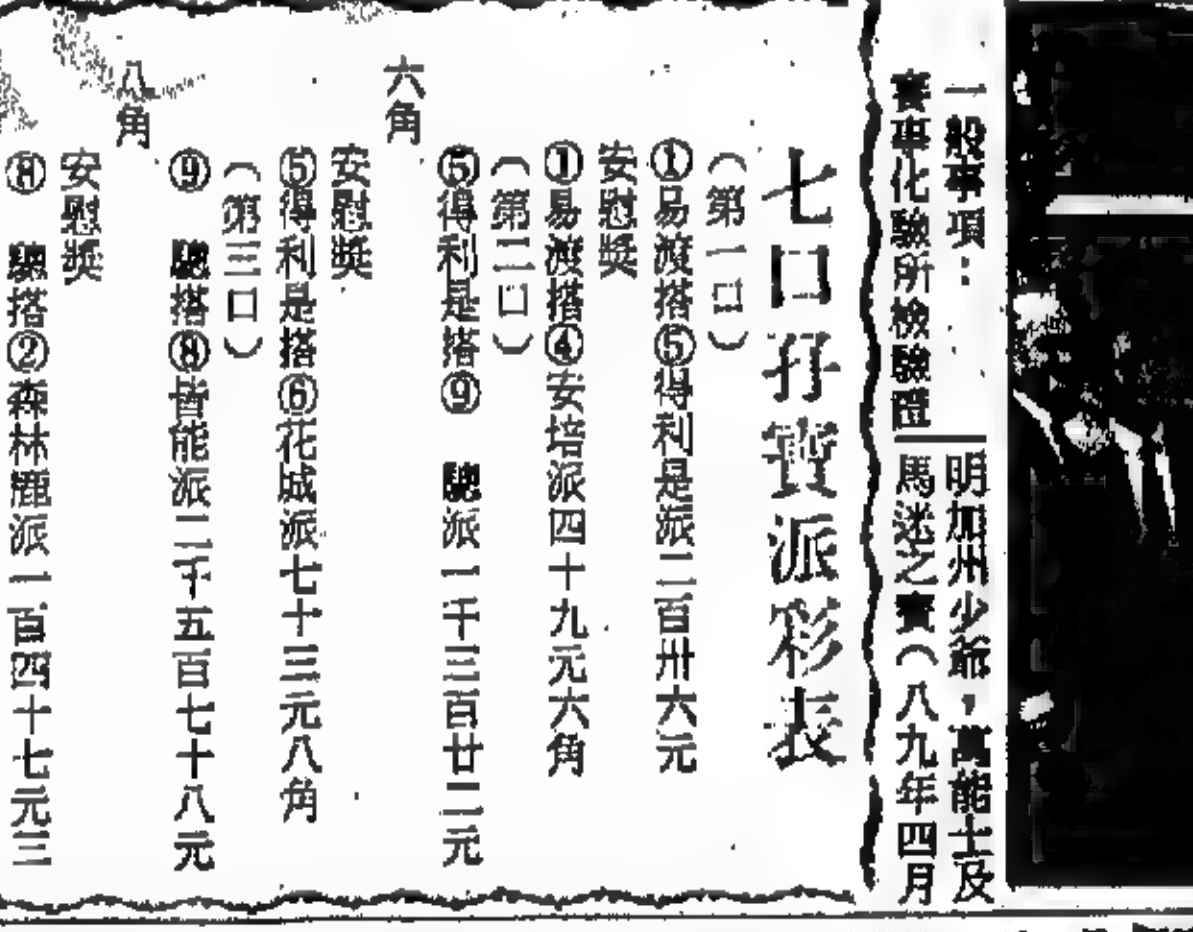 一般事項：
賽事化驗所檢驗證
明加州少爺，萬能士及
馬迷之賽（八九年四月
七口孖寶派彩表
（第一口）
①易渡搭⑤得利是派二百卅六元
安慰獎
①易渡搭④安培派四十九元六角
（第二口）
⑤得利是搭⑨　驄派一千三百廿二元
六角
安慰獎
⑤得利是搭⑥花城派七十三元八角
（第三口）
⑨　驄搭⑧皆能派二千五百七十八元
八角
安慰獎
⑧　驄搭②森林鹿派一百四十七元三